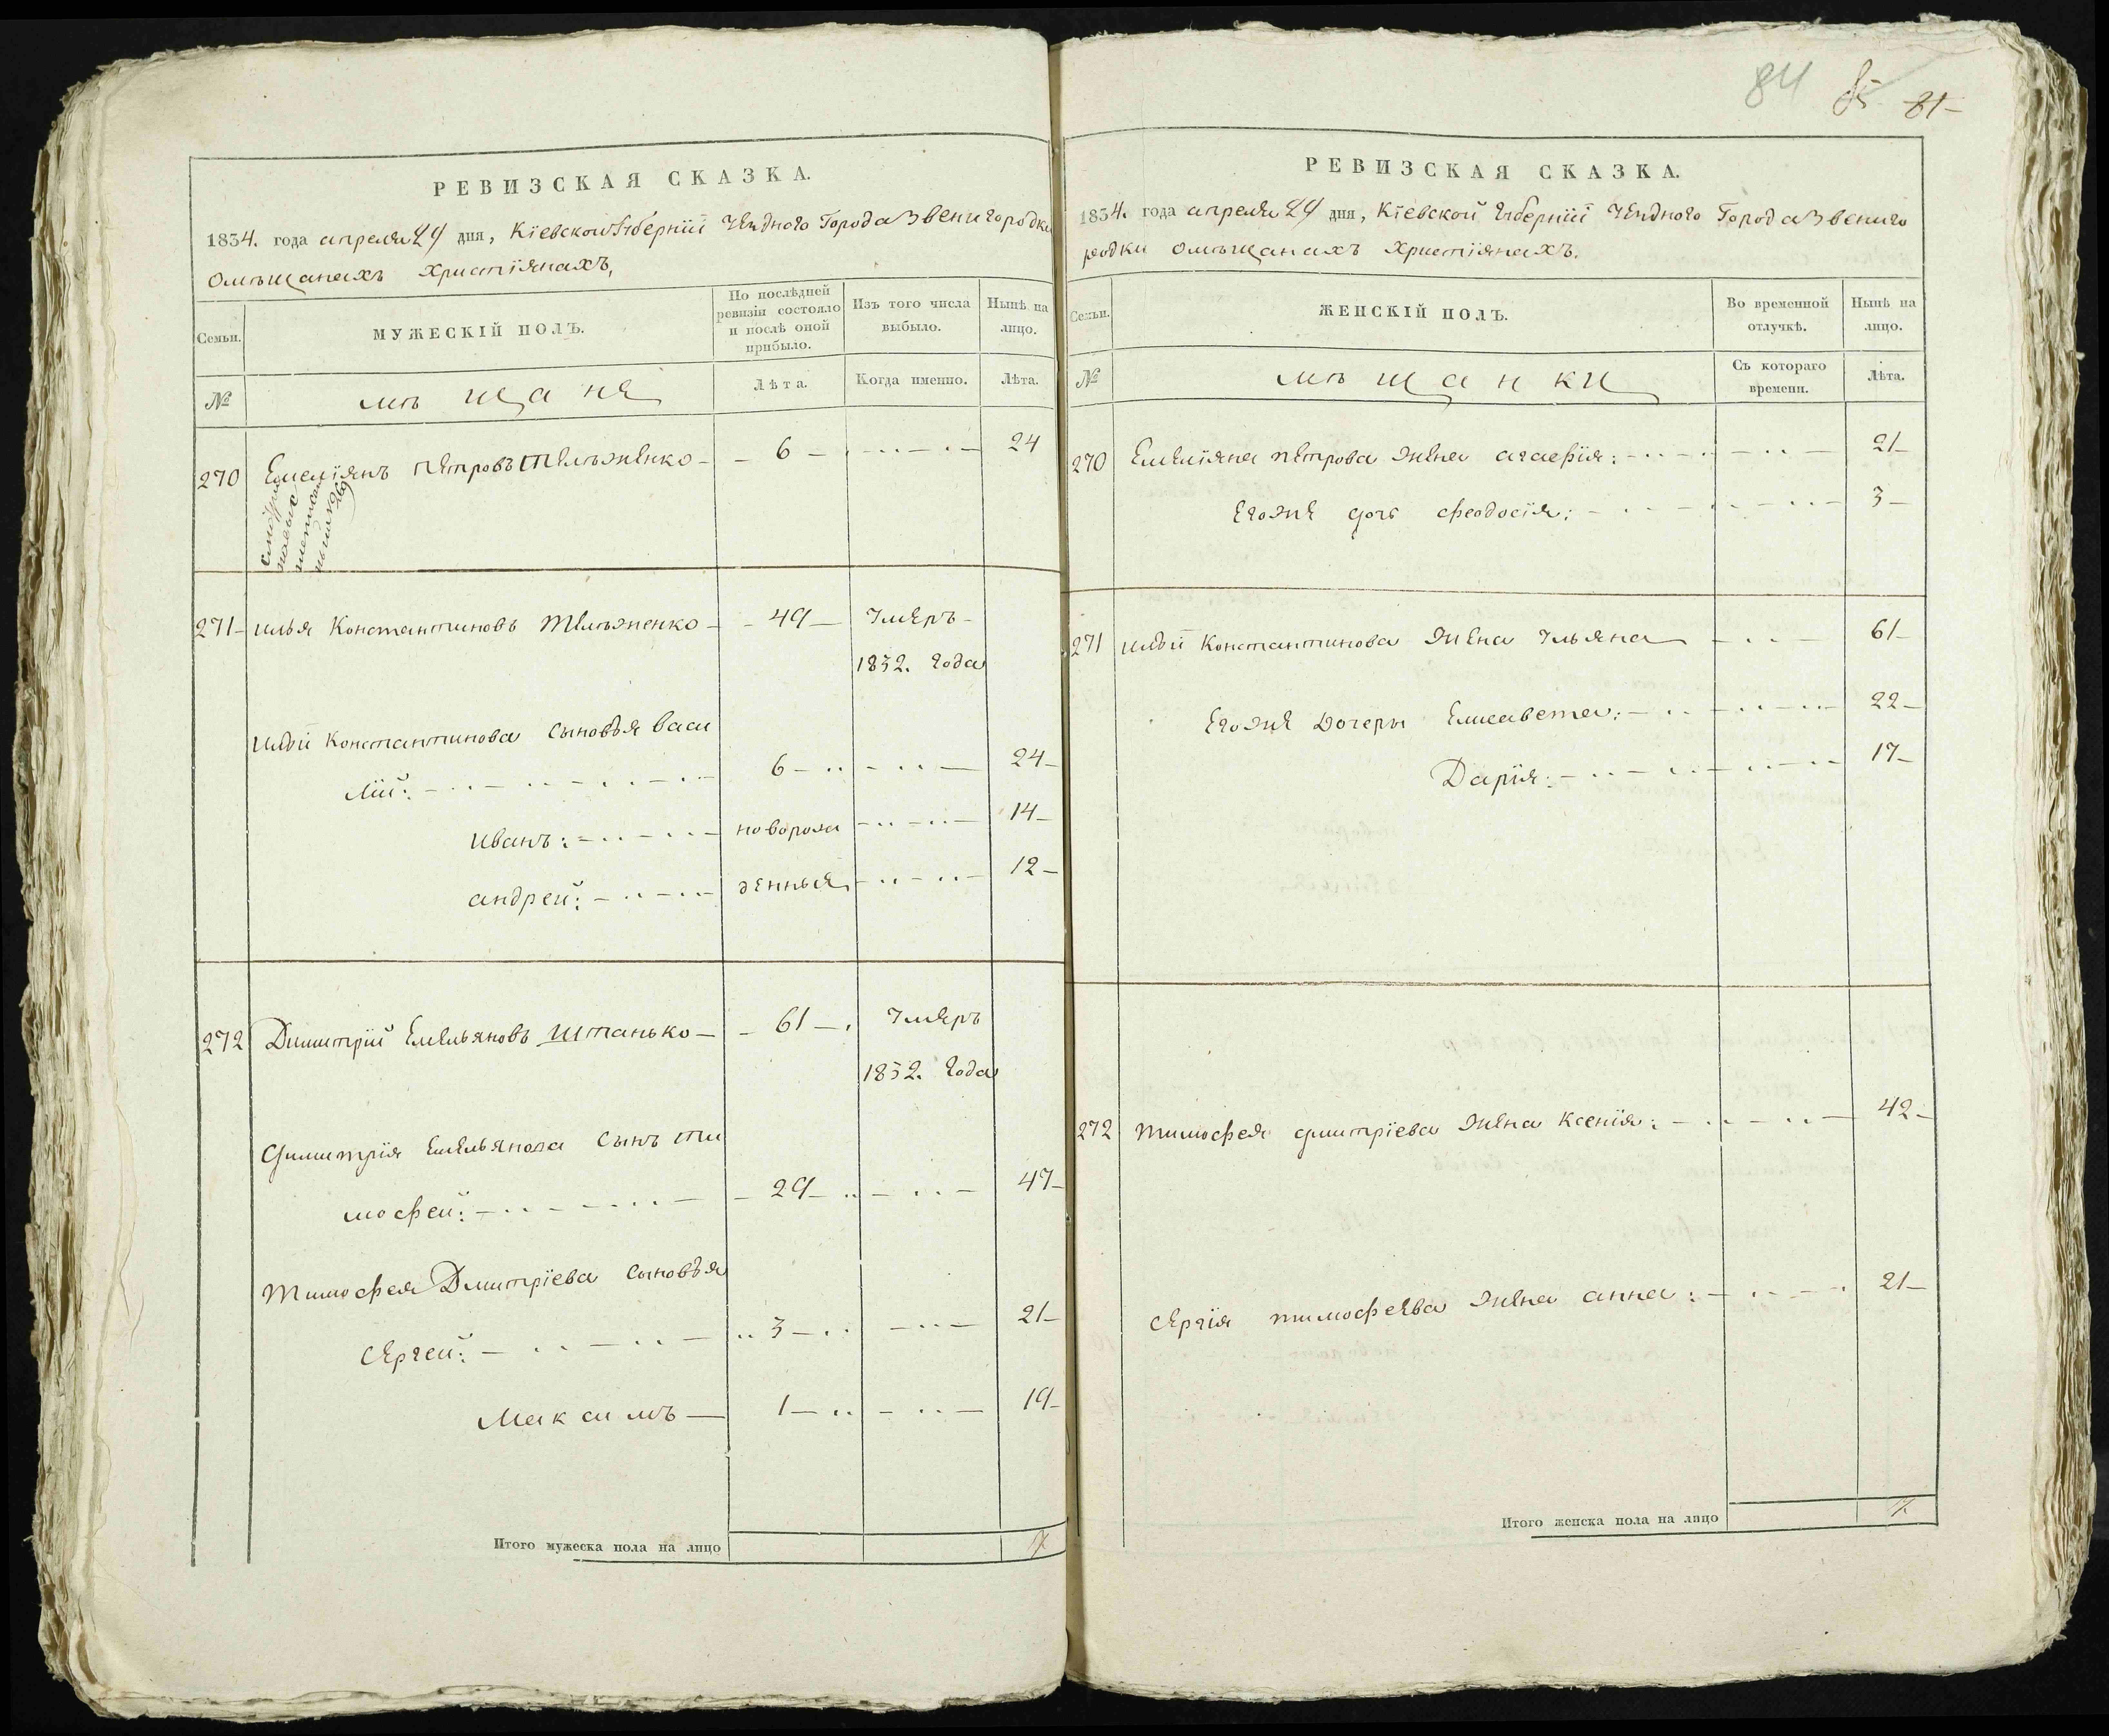 РЕВИЗСКАЯ СКАЗКА.
1834. года апреля 24 дня, Кіевской Губерніи Уезднаго Города Звенигородки
О мѣщанахъ Христіянахъ.
Семьи.
МУЖЕСКІЙ ПОЛЪ.
По послѣдней
ревизіи состояло
и послѣ оной
прибыло.
Изъ того числа
выбыло.
Нынѣ на
лицо.
№
мѣщане
Лѣта.
Когда именно.
Лѣта.
270 Емеліянъ Петровъ Телѣженко – 6 – 24
271 – Илья Константиновъ Телѣженко – 49 – Умеръ –
1832. Года
Иліи Константинова сыновья Васи
лій: 6 – 24 –
Иванъ: новорож 14 –
Андрей: денные 12 –
272 Димитрій Емельяновъ Штанько – 61 – Умеръ
1832. Года
Димитрія Емельянова сынъ Ти
мофей: – 29 – 47 –
Тимофея Дмитріева сыновья
Сергей: 3 – 21 –
Максимъ – 1 – 19 –
Итого мужеска пола на лицо
84 81 –
РЕВИЗСКАЯ СКАЗКА.
1834. года апреля 24 дня, Кіевской Губерніи Уезднаго Города Звениго
родки О мѣщанахъ Христіянахъ.
Семьи.
ЖЕНСКІЙ ПОЛЪ.
Во временной
отлучкѣ.
Нынѣ на
лицо.
№
мѣщанки
Съ котораго
времени.
Лѣта.
270 Емеліяна Петрова жена Агафія: 21 –
Его же дочь Феодосія: 3 –
271 Иліи Константинова жена Ульяна 61 –
Его же дочери Елисавета: 22 –
Дарія: 17 –
272 Тимофея Дмитріева жена Ксенія: 42 –
Сергія Тимофеева жена Анна: 21 –
Итого женска пола на лицо